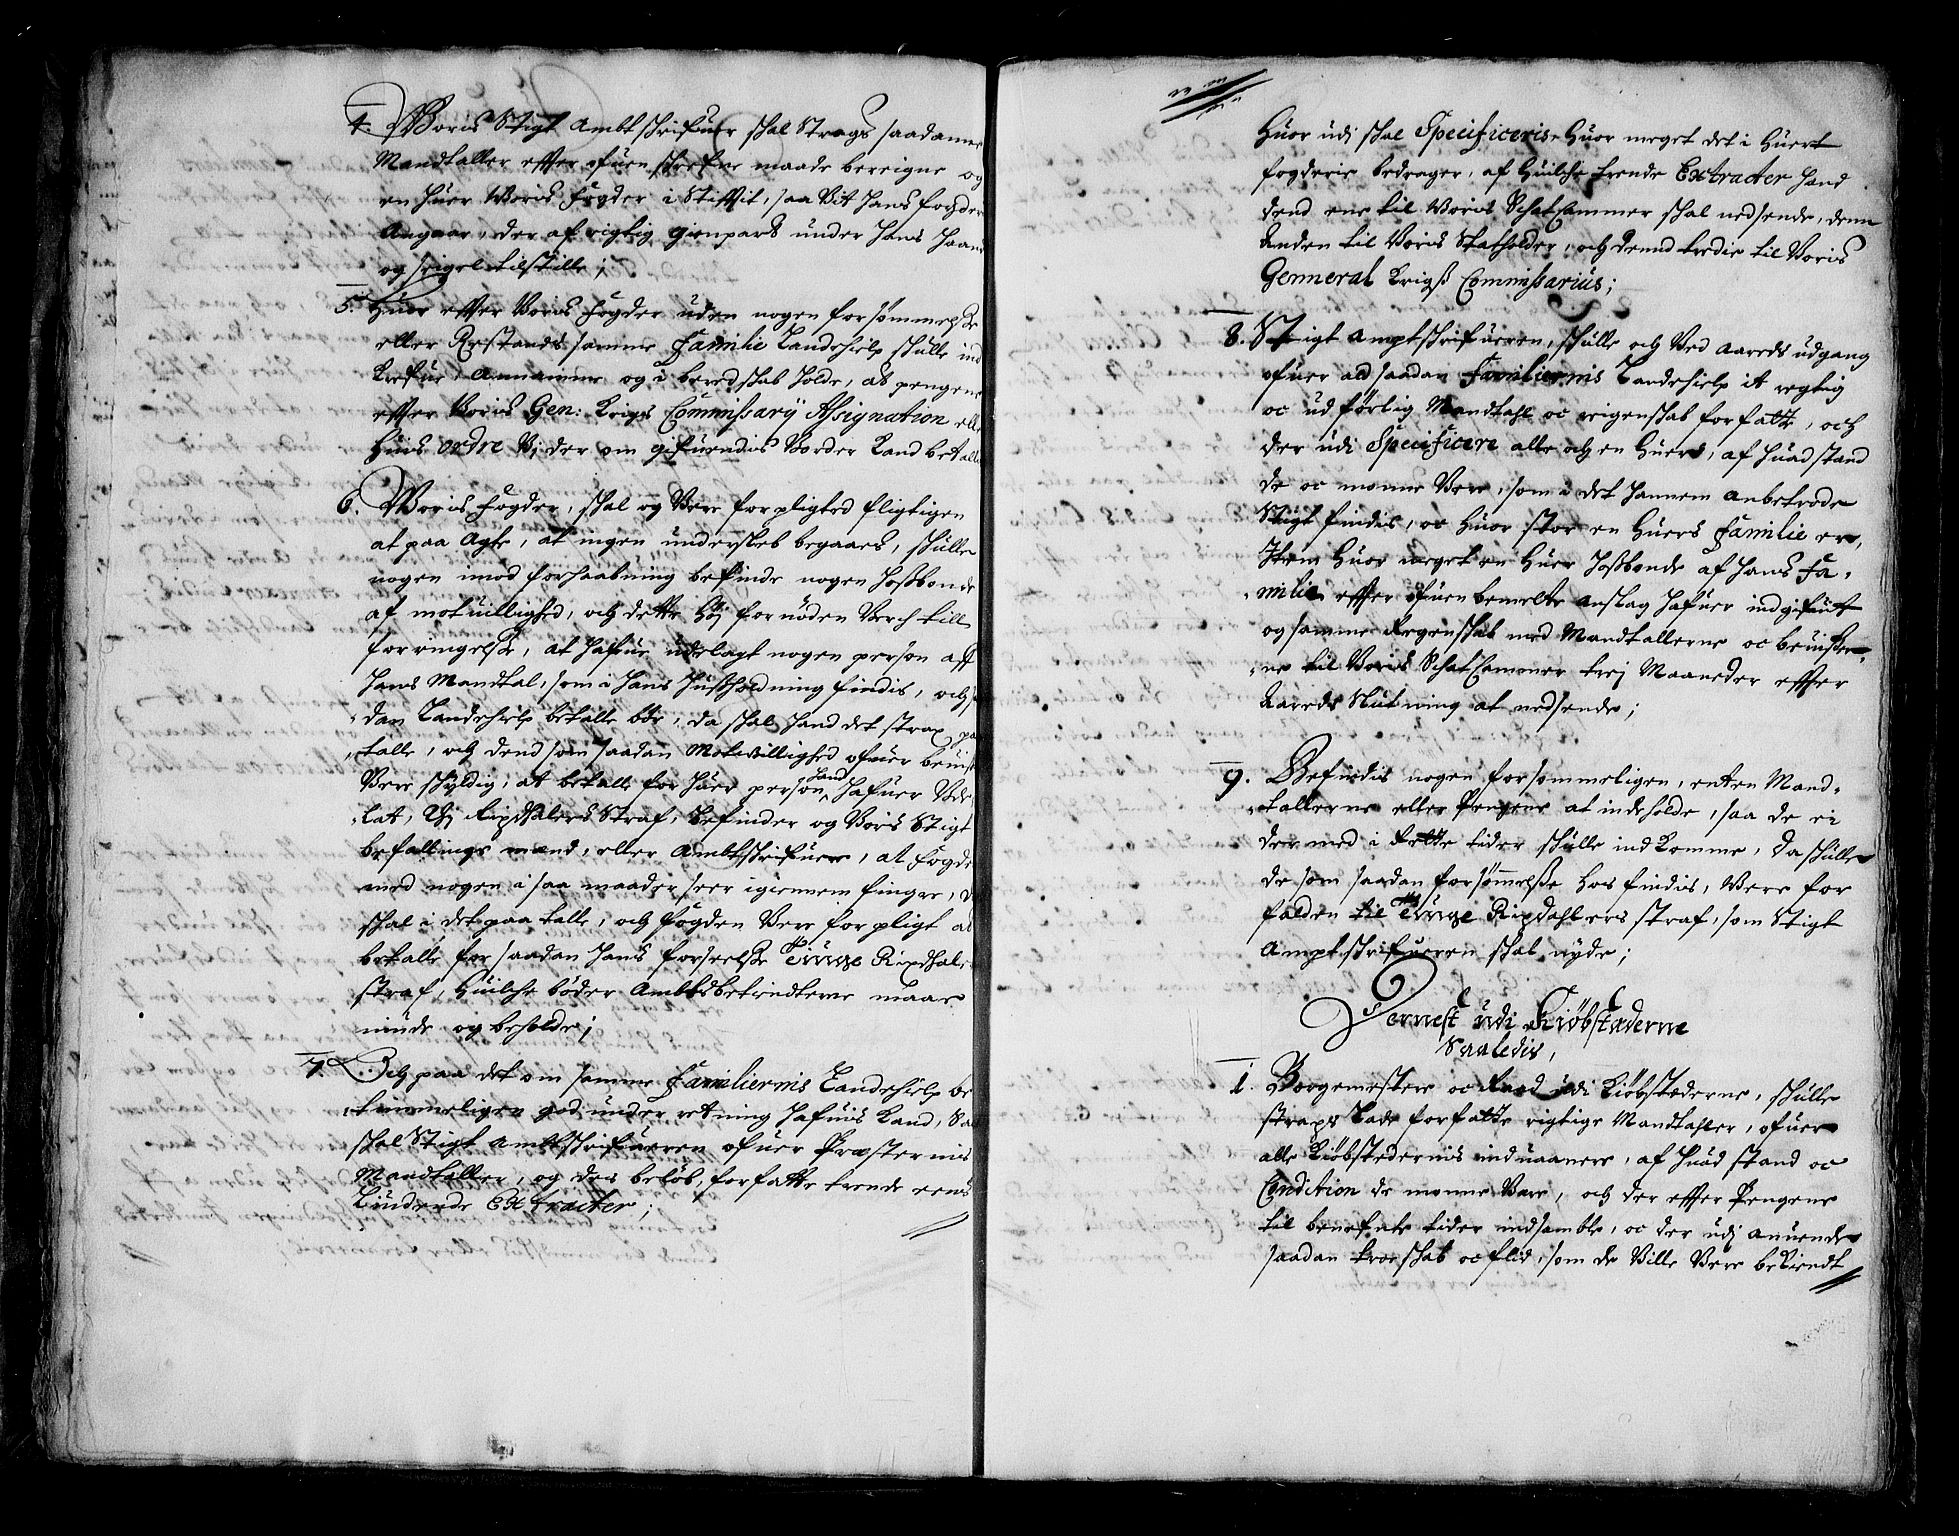 4. Woris Stigt Ambtschrifuer schal Strags saadanne
Mandtaller effter ofuenschrefne maade bereigne og
en huer Woris Fogder i Stifftit, saa vit hans fogderi
Angaar, der af rigtig gienpart under hans haand
og seigel tilstille;
5. Huor effter Woris Fogder uden nogen forsømmelsse
eller Restands samme Familie Landehielp schulle ind
krefue, Annamme og i beredschab holde, at pengene
effter Voris Gen: Krigs Commissarij Assignation eller
Huis Ordre Vj der om gifuendis Vorder kand betallis
6. Woris Fogder, schal og Vere forpligted fligtigen
at paa Agte, at ingen undersleb begaaes, schulle
nogen imod forhaabning befinde nogen hossbonde
af motuillighed, och dette høj fornøden Verch till
forringelsse, at hafue udelagt nogen person aff
hans Mandtal, som i hans hussholdning findis, och saa
dan Landehielp betalle bør, da schal hand det strax paa
talle, och dend som saadan Motvillighed ofuer beuises
Vere schyldig, at betalle for huer person hand hafuer Vde
lat, Rixdalers Straf, Befinder og Voris Stigt
befallings mand, eller Ambtschrifuer, at Fogden
med nogen i saa maader seer igiennem finger, da
schal i det paa talle, och Fogden Vere forpligt at
betalle for saadan hans forseelsse Tiuge Rixdhalers
straf, Huilche bøder Ambtsbetiendterne maae
niude og beholde;
7. Och paa det om samme Familiernis Landehielp be
timmeligen god underretning hafuis kand, Saa
schal Stigt Ambtschrifueren ofuer Præsternis
Mandtaller, og des beløb, forfatte trende eens
Liudende Extracter;
Huor udi schal Specificeris Huor meget det i Huert
fogderie bedrager, af Huilche trende Extracter hand
dend ene til Voris Schatcammer schal nedsende, denn
Anden til Voris Statholder, och dennd tredie til Voris
Genneral krigß Commissarius;
8. Stigt Amptschrifueren, schulle och Ved Aareds udgang
ofuer ald saadan Familiernis Landehielp it rigtig
oc udførlig Mandtahl oc reigenschab forfatte, och
der udi Specificere alle och en Huers, af huad stand
de oc monne Vere, som i det hannem anbetrode
Stigt findis, oc Huor stor en Huers Familie er,
Item Huor meget en Huer hossbonde af hans Fa-
milie effter ofuenbemelte anslag hafuer indgifuit
og samme Regenschab med Mandtallerne oc beuisser-
ne til Voris Schatcammer trej Maaneder effter
Aareds Slutning at nedsende;
9. Befindis nogen forsømmeligen, enten Mand-
tallerne eller Pengene at indeholde, saa de ei
der med i Rette tider schulle ind komme, da schulle
de som saadan forsømmelsse hos findis, Vere for
falden til Tiuge Rixdahlers straf, som Stigt
Amptschrifueren schal nyde;
Dernest udi Kiøbstæderne
Saaledis,
1. Borgemestere oc Raad udi kiøbstederne, schulle
straxs lade forfatte rigtige Mandtahler, ofuer
alle kiøbstedernis induaanere, af huad stand oc
Condition de monne Vere, och der effter Pengene
til benefnte tider indsamble, oc der udj anuende
saadan troeschab oc flid, som de Ville Vere bekiendt